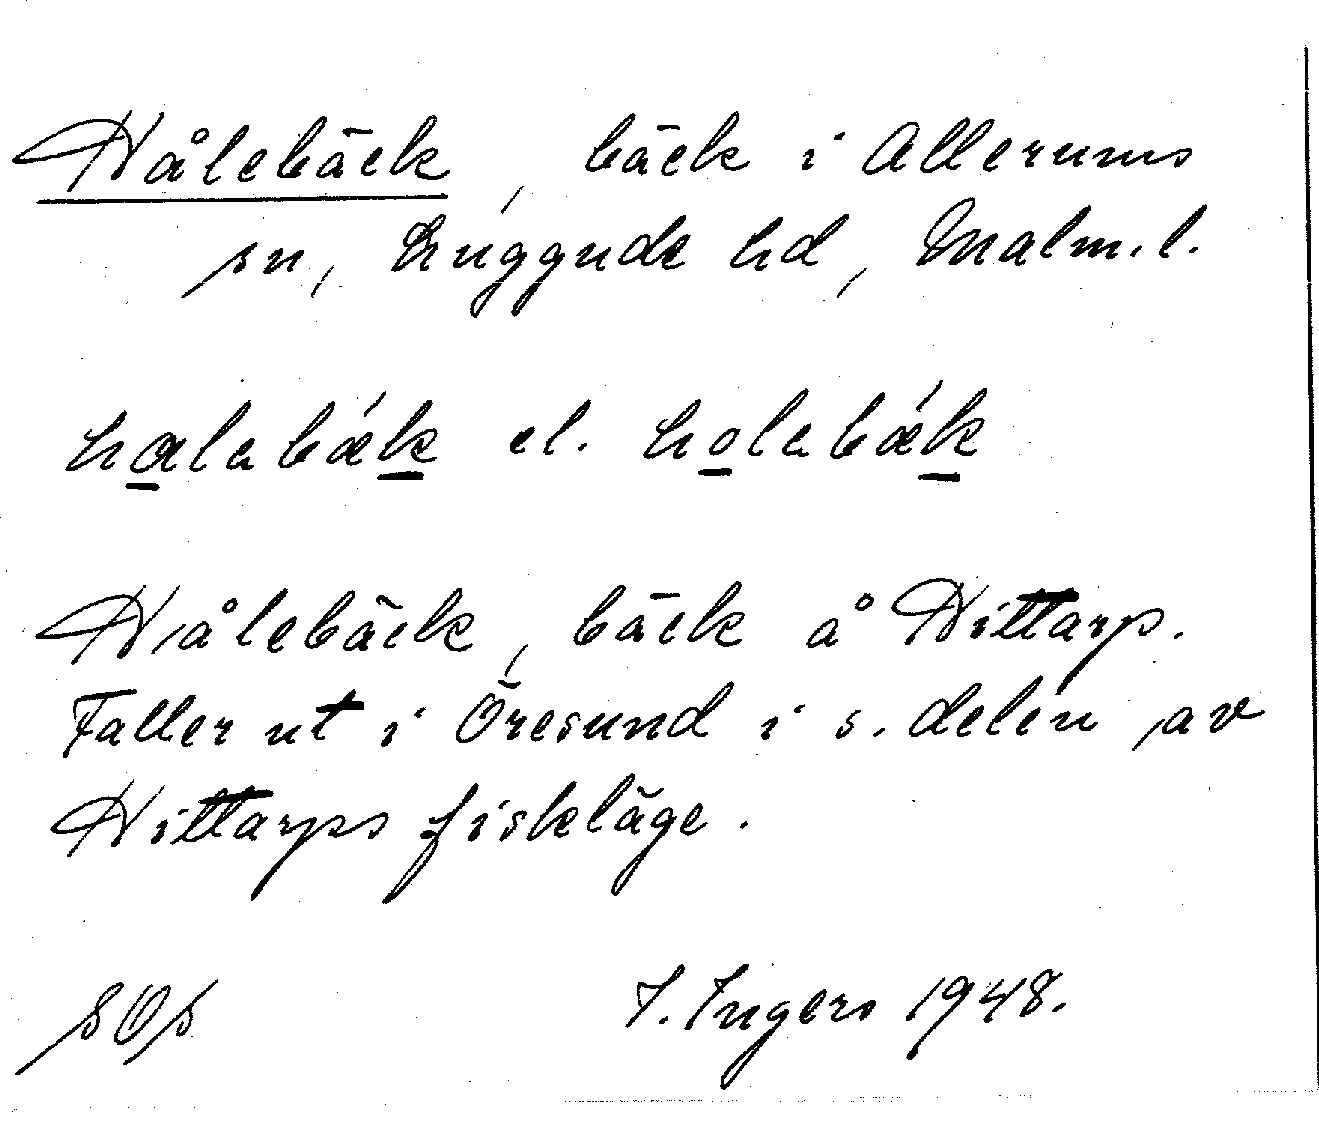 Hålebäck, bäck i Allerums
sn, Luggude hd, Malm. l.
halabǽk el. holabǽk
Hålebäck, bäck å Hittarp.
Faller ut i Öresund i s. delen av
Hittarps fiskläge.
SOs I. Ingers 1948.